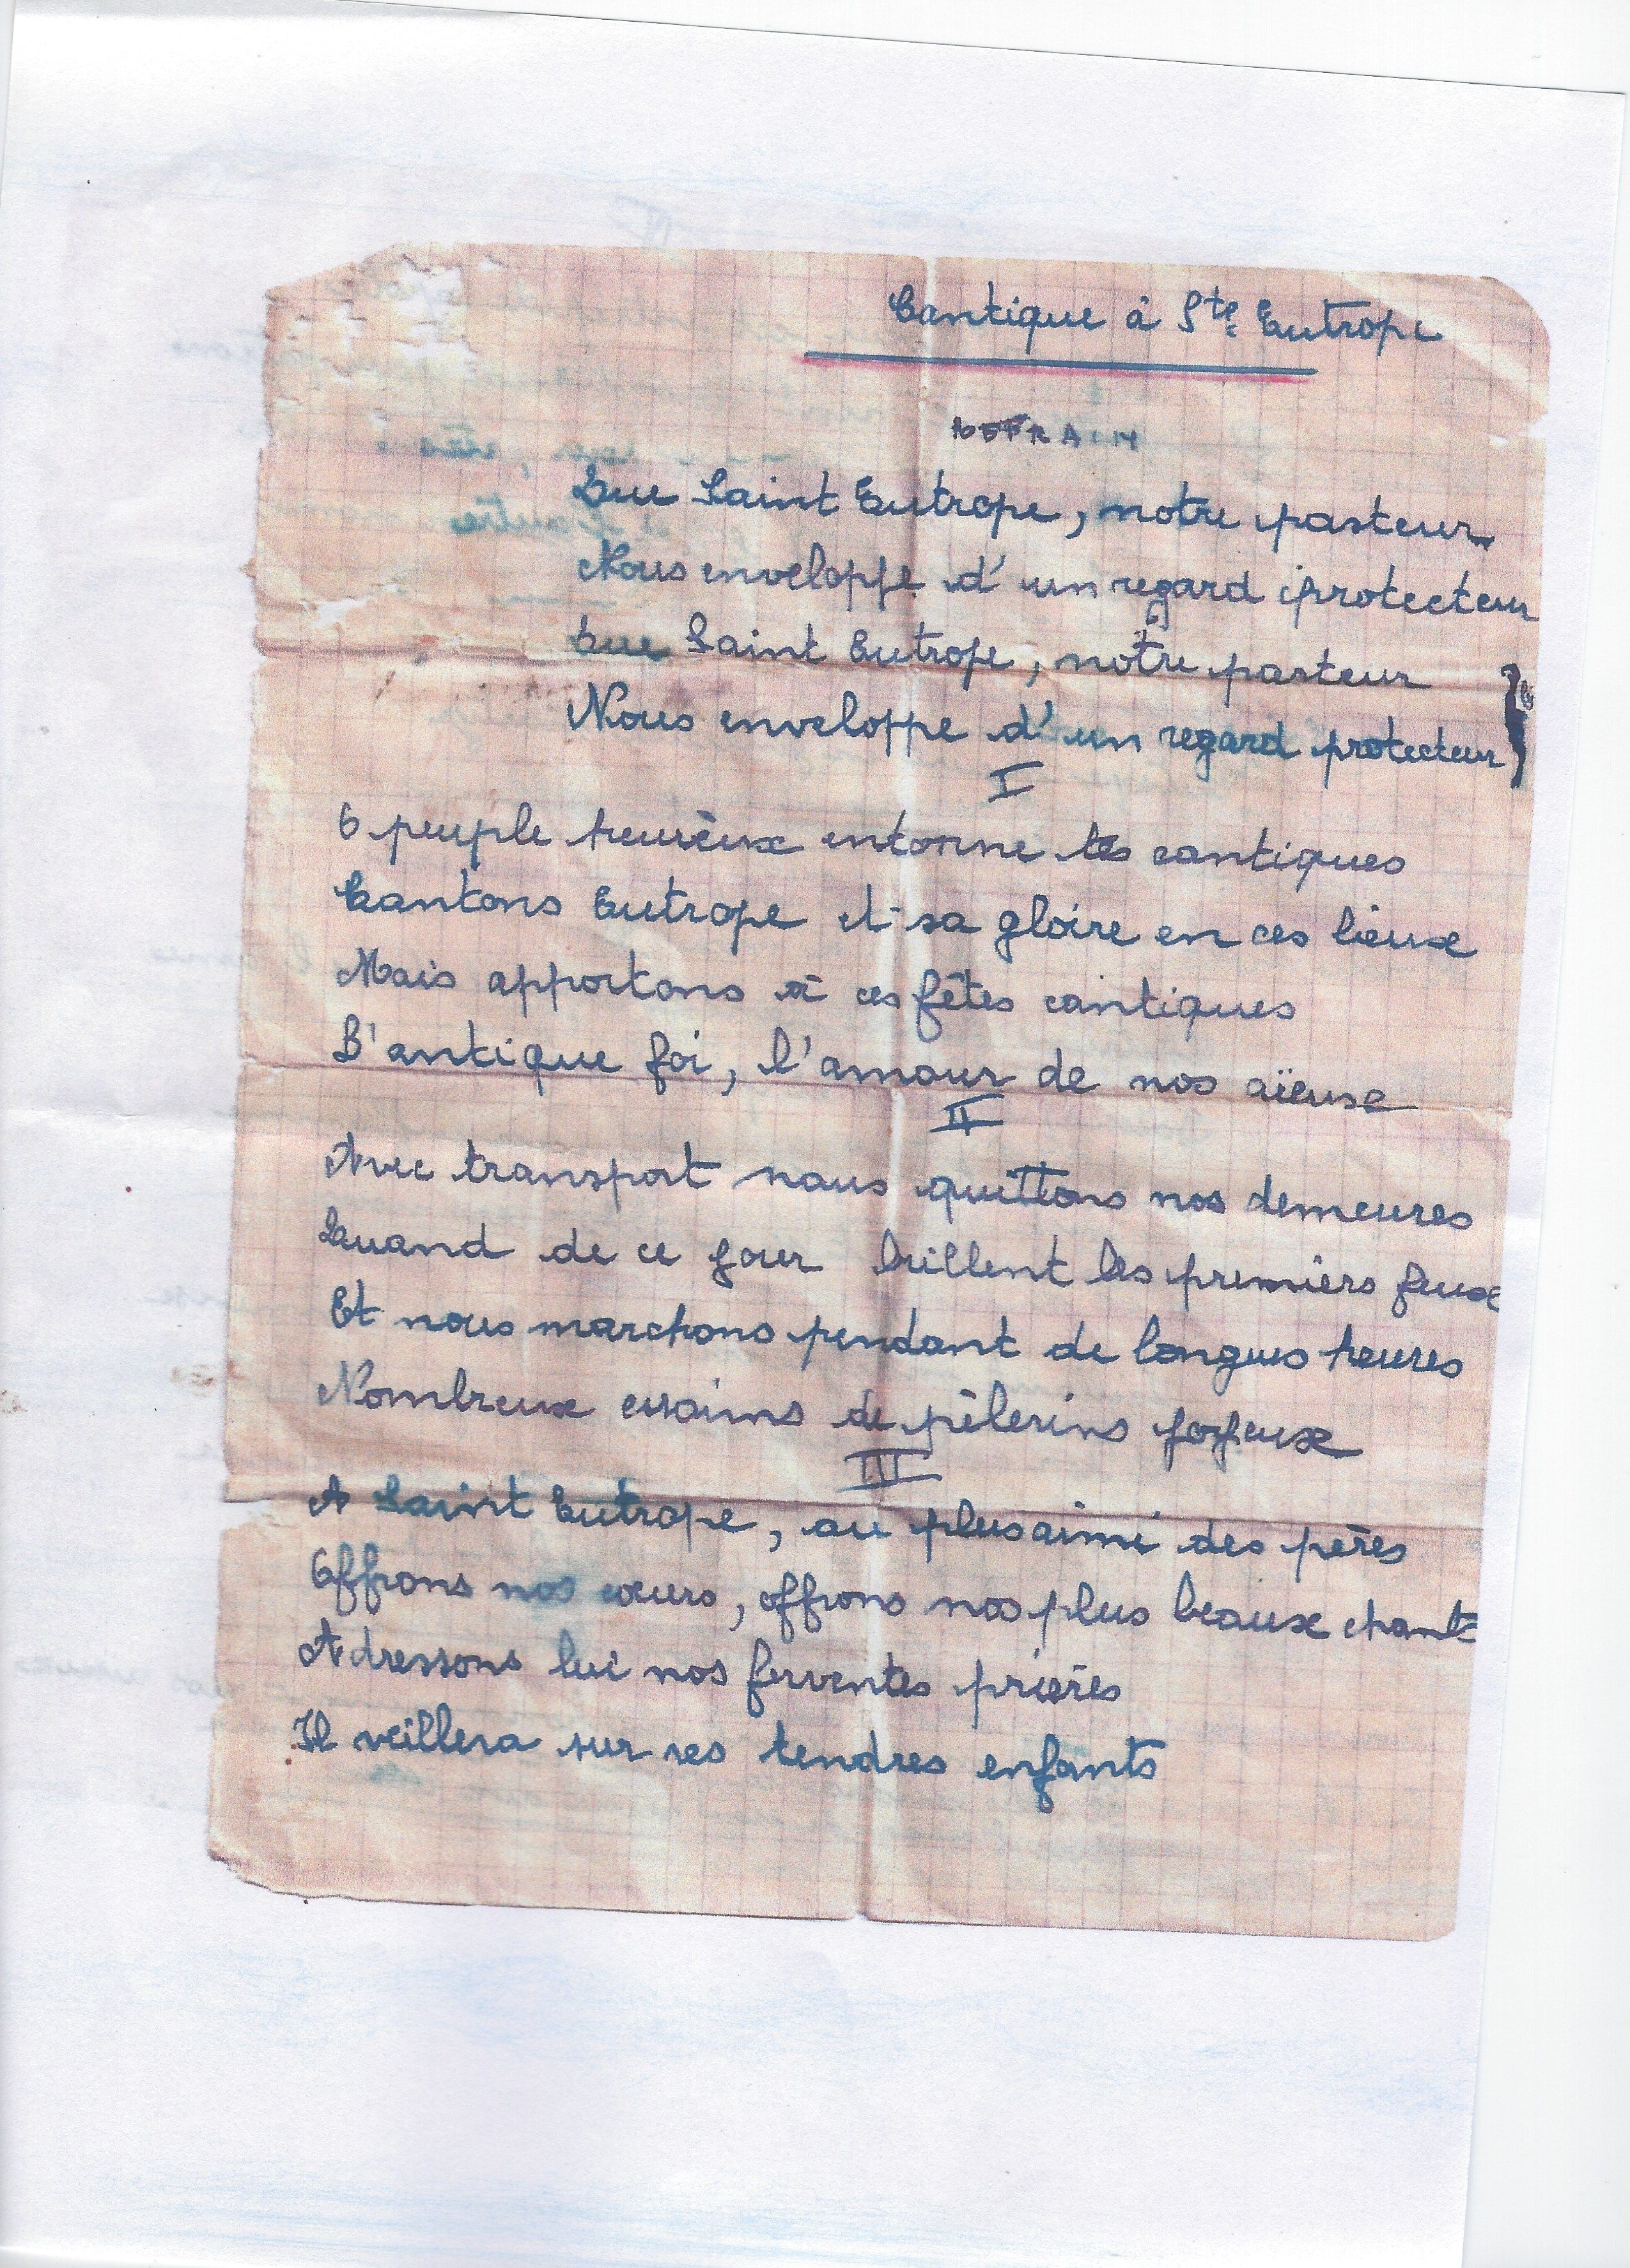 Cantique à Ste Eutrope
REFRAIN
Que Saint Eutrope, notre pasteur
Nous enveloppe d'un regard protecteur
Que Saint Eutrope, notre pasteur
Nous enveloppe d'un regard protecteur
I
O peuple heureux entonne tes cantiques
Cantons Eutrope et sa gloire en ces lieux
Mais apportons à ces fêtes cantiques
L'antique foi, l'amour de nos aïeux
II
Avec transport nous quittons nos demeures
Quand de ce jour brillent les premiers feux
Et nous marchons pendant de longues heures
Nombreux essaims de pèlerins joyeux
III
A Saint Eutrope, au plus aimé des pères
Offrons nos cœurs, offrons nos plus beaux chants
Adressons lui nos ferventes prières
Il veillera sur ses tendres enfants